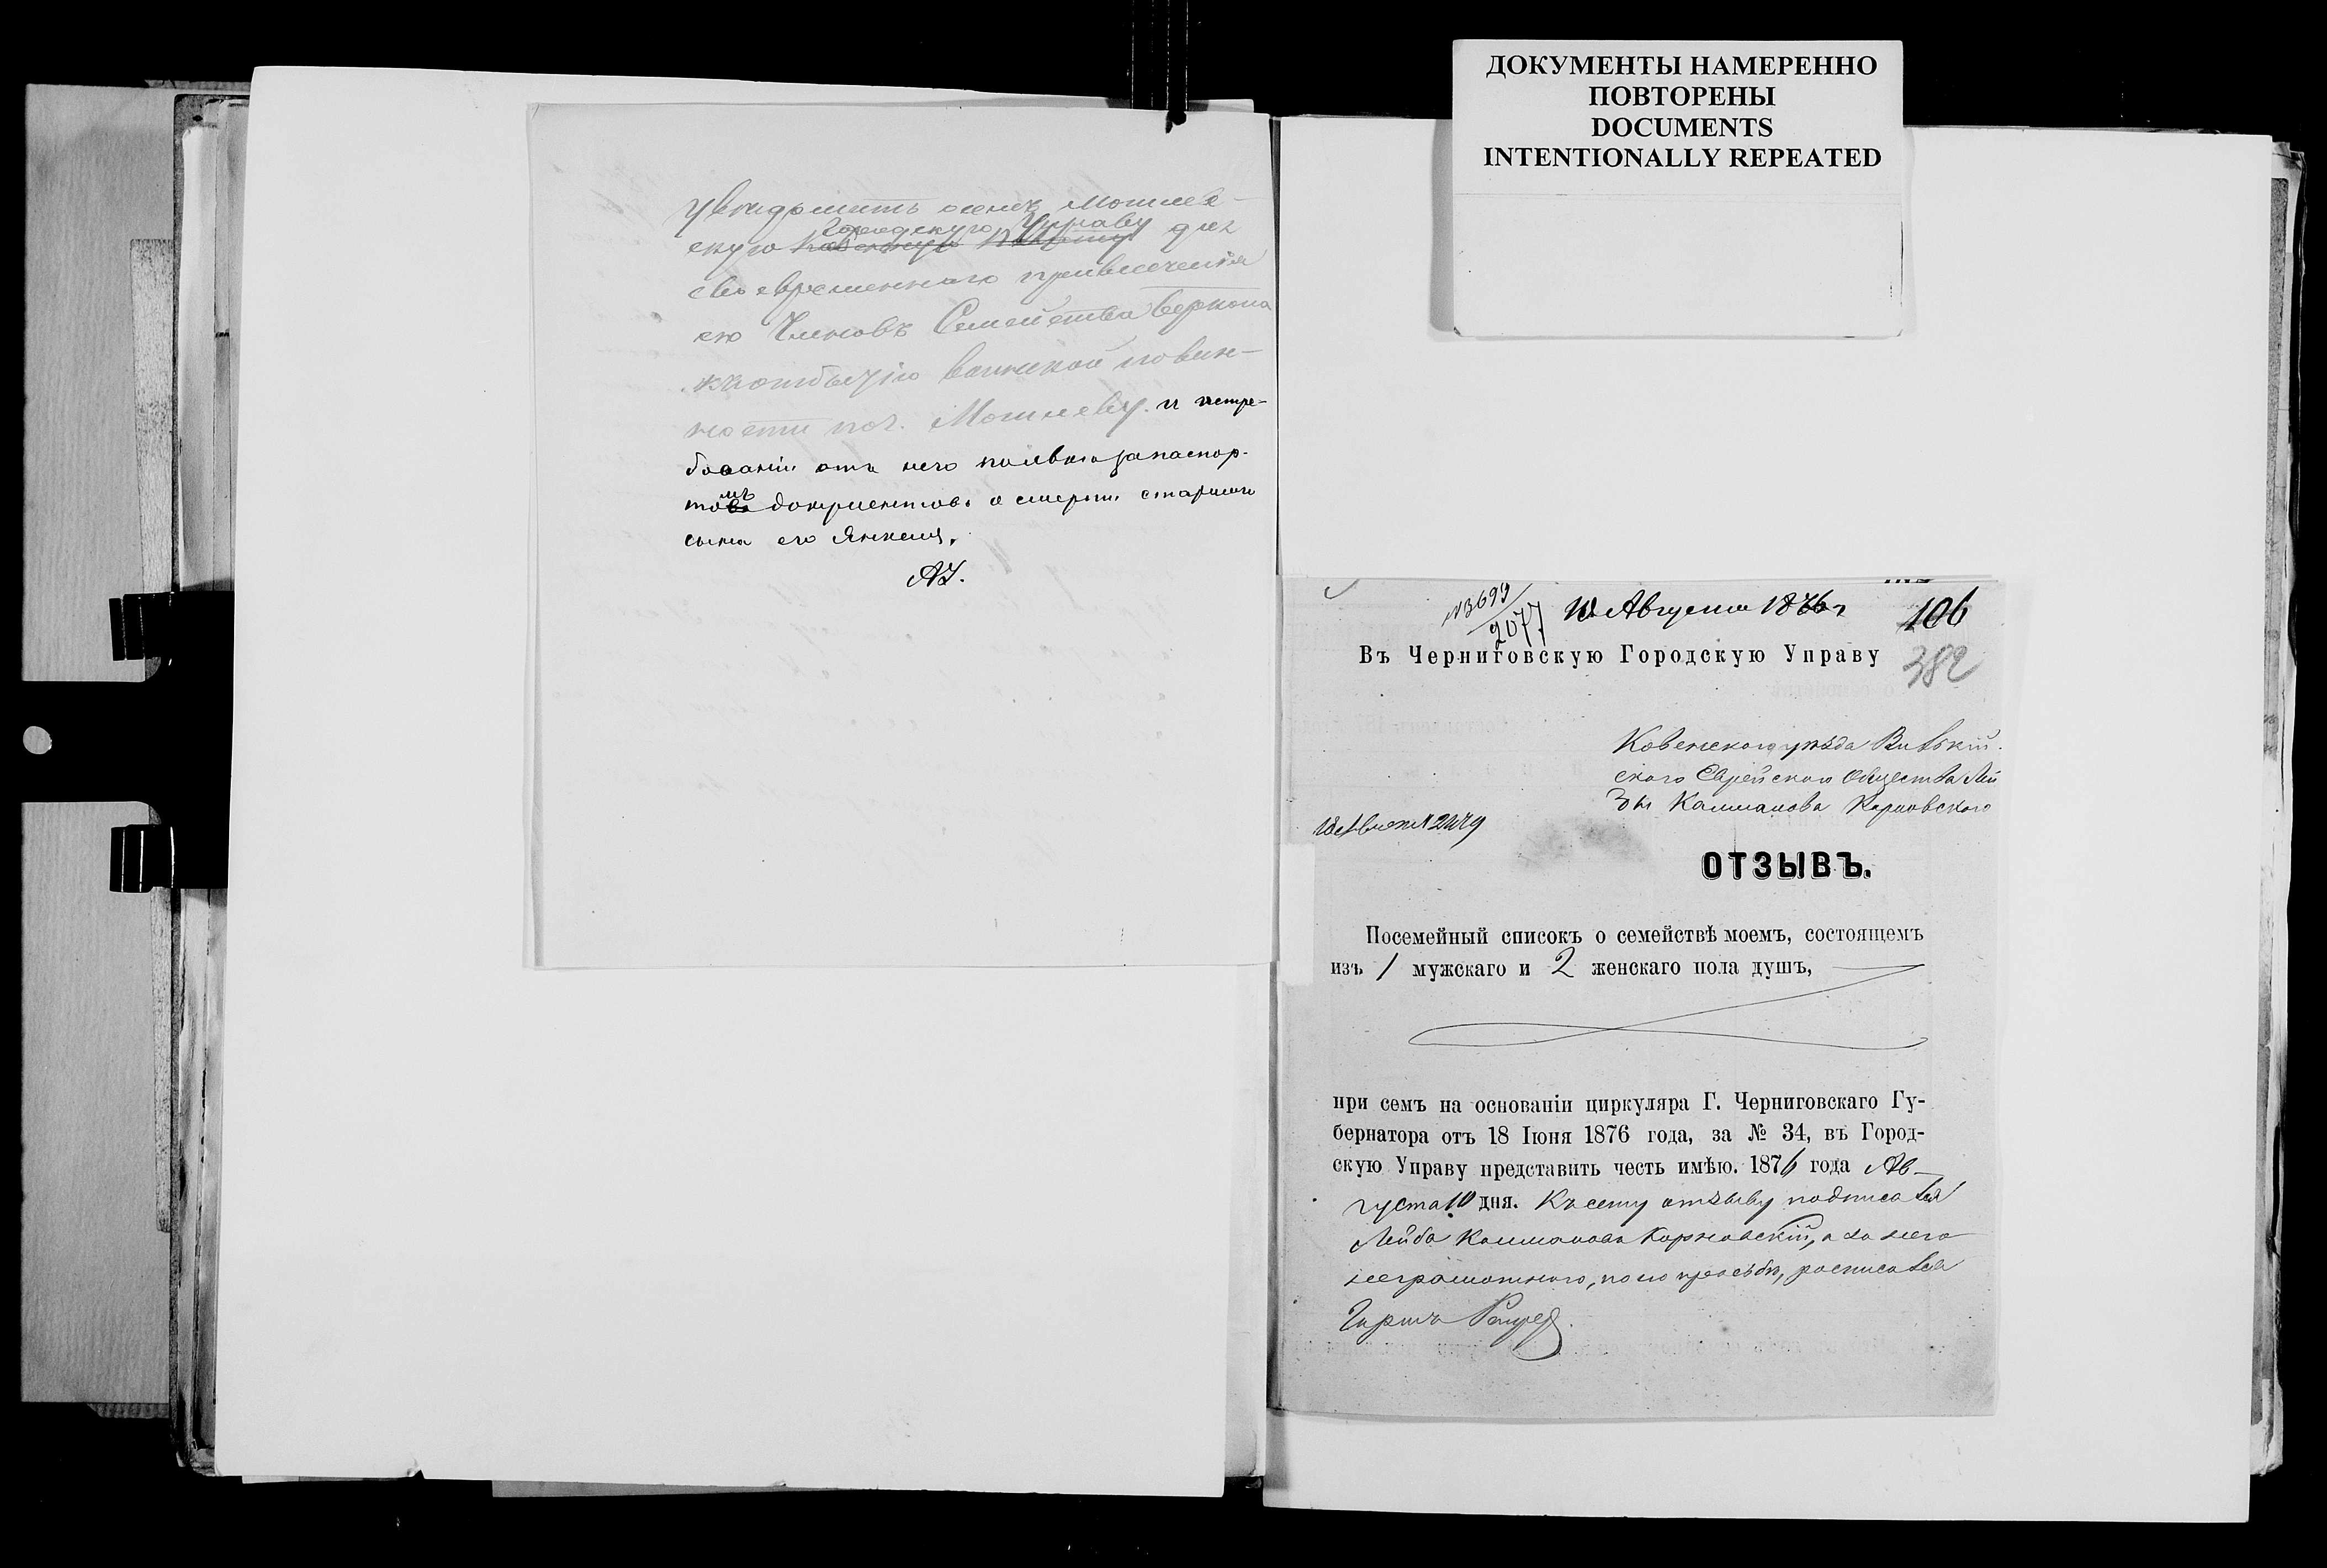 увѣдомить о семъ Могилев-
скую Городскую Управу для
своевременнаго привлеченія
его Членовъ Семейства Беркона
къ отбытію воинской повин-
ности по г. Могилеву. и истре-
бованіи отъ него
документовъ о смерти старшаго
сына его Янкеля.
ДОКУМЕНТЫ НАМЕРЕННО
ПОВТОРЕНЫ
DOCUMENTS
INTENTIONALLY REPEATED
№3699
2077
10 Августа 1876 г
106
Въ Черниговскую Городскую Управу
382
Ковенскаго уѣзда Вилькій-
скаго Еврейскаго Общества Лей
бы Калманова Корновского
ОТЗЫВЪ.
Посемейный списокъ о семействѣ моемъ, состоящемъ
изъ 1 мужскаго и 2 женскаго пола душъ,
при семъ на основаніи циркуляра Г. Черниговскаго Гу-
бернатора отъ 18 Іюня 1876 года, за № 34, въ Город-
скую Управу представить честь имѣю. 1876 года Ав-
густа 10 дня. Къ сему отзыву подписался
Лейба Калмановъ Корновскій, а за него
неграмотного, по его просьбѣ, росписался
Гирша